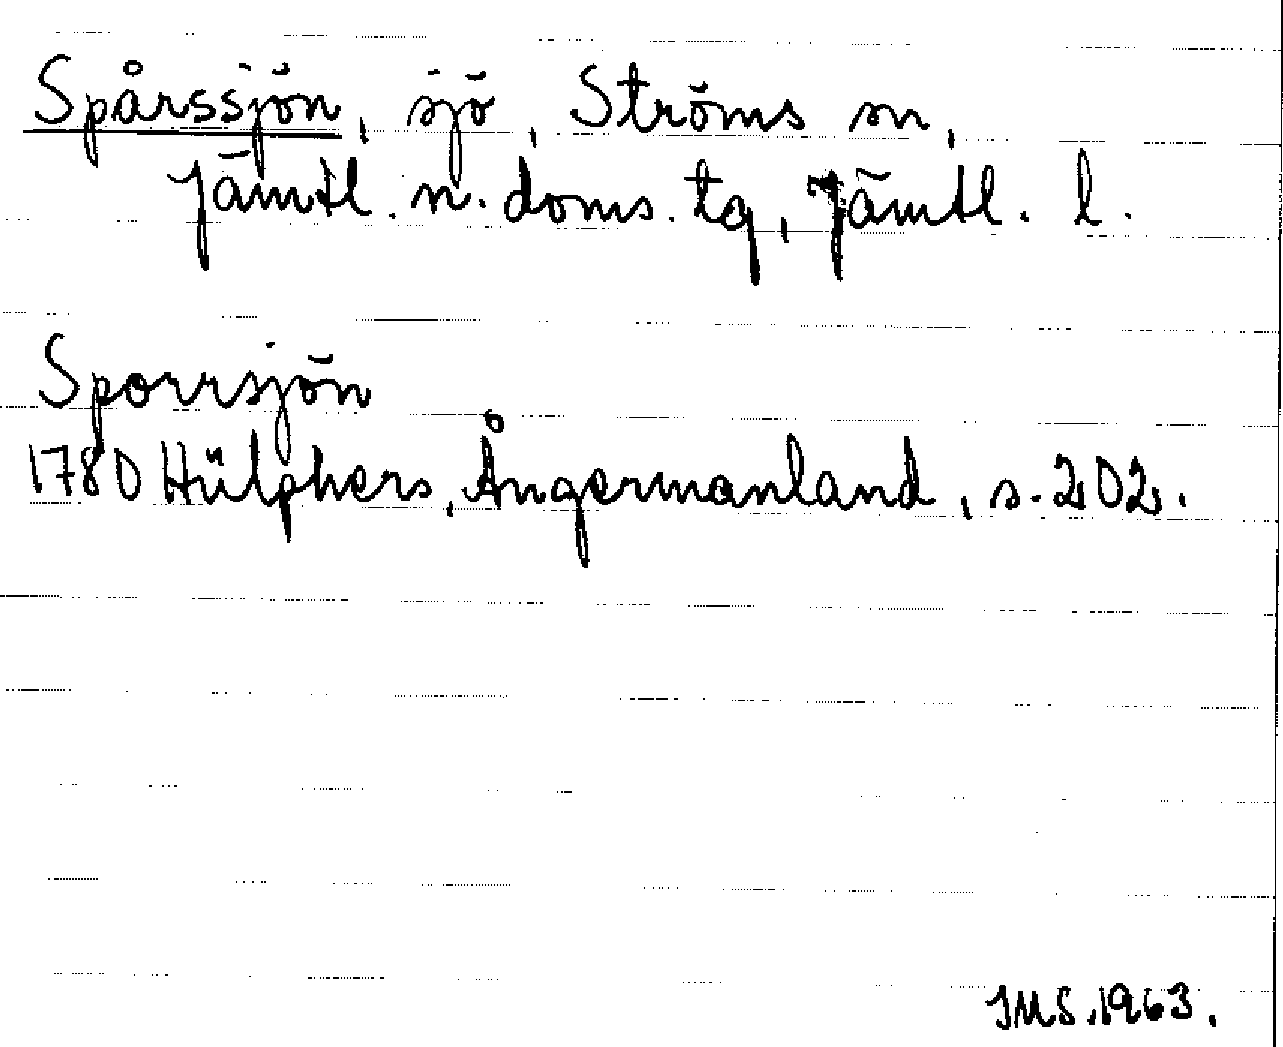 Spårssjön, sjö, Ströms sn,
Jämtl. n. doms. tg, Jämtl. l.
Sporrsjön
1780 Hülphers, Ångermanland, s. 202.
IMS. 1963.